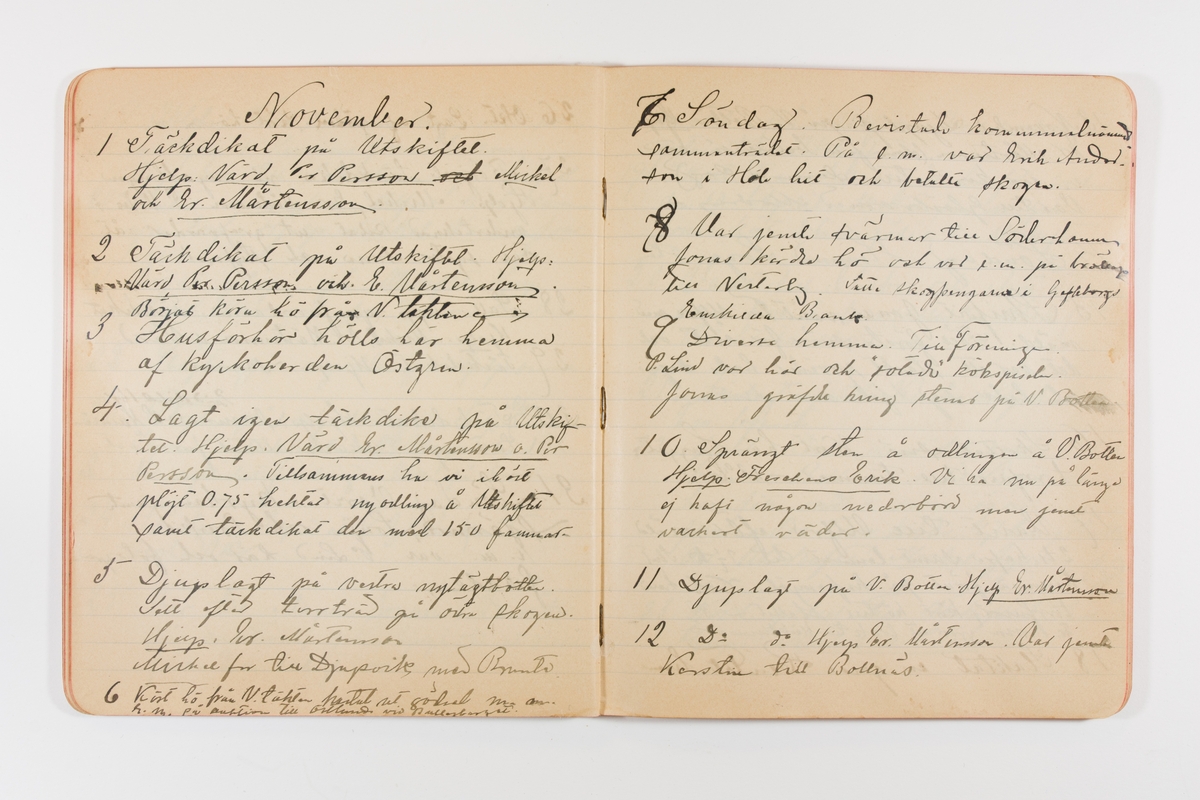 November.
1 Täckdikat på Utskiftet.
Hjelp: Värd Per Persson och Mickel
och Er. Mårtensson.
2 Täckdikat på Utskiftet. Hjelp:
Värd Per Persson och E. Mårtensson.
Börjat köra hö från V. täkten
3 Husförhör hölls här hemma
af Kyrkoherden Östgren.
4. Lagt igen täckdike på Utskif-
tet. Hjelp. Värd Er. Mårtensson o. Per
Persson. Tillsammans ha vi i höst
plöjt 0.75 hektar nyodling å Utskiftet
samt täckdikat der med 150 famnar.
5 Djuplagt på vestra
Sett efter torrträd på östra skogen.
Hjelp. Er. Mårtensson
Mickel for till Djupvik med Brunte.
6 Kört hö från V. täkten
e. m. på auktion till
7 Söndag. Bevistade kommunalnämnd
sammanträdet. På e. m. var Erik Anders-
son i Hof hit och betalte skogen.
8 Var jemte svärmor till Söderhamn
Jonas körde hö och var e. m. på
till Vesterby. Satte skogspengarne i Gefleborgs
Enskilda Bank
9 Diverse hemma. Till Föreningen.
P. Lind var här och sotade kökspisen.
Jonas gräfde kring stenar på V. Botten.
10. Sprängt sten å odlingen å V. Botten
Hjelp: Erik. Vi ha nu på länge
ej haft någon nederbörd men jemt
vackert väder.
11 Djuplagt på V. Botten Hjelp Er. Mårtensson
12 Do do Hjelp Er. Mårtensson. Var jemte
Kerstin till Bollnäs.